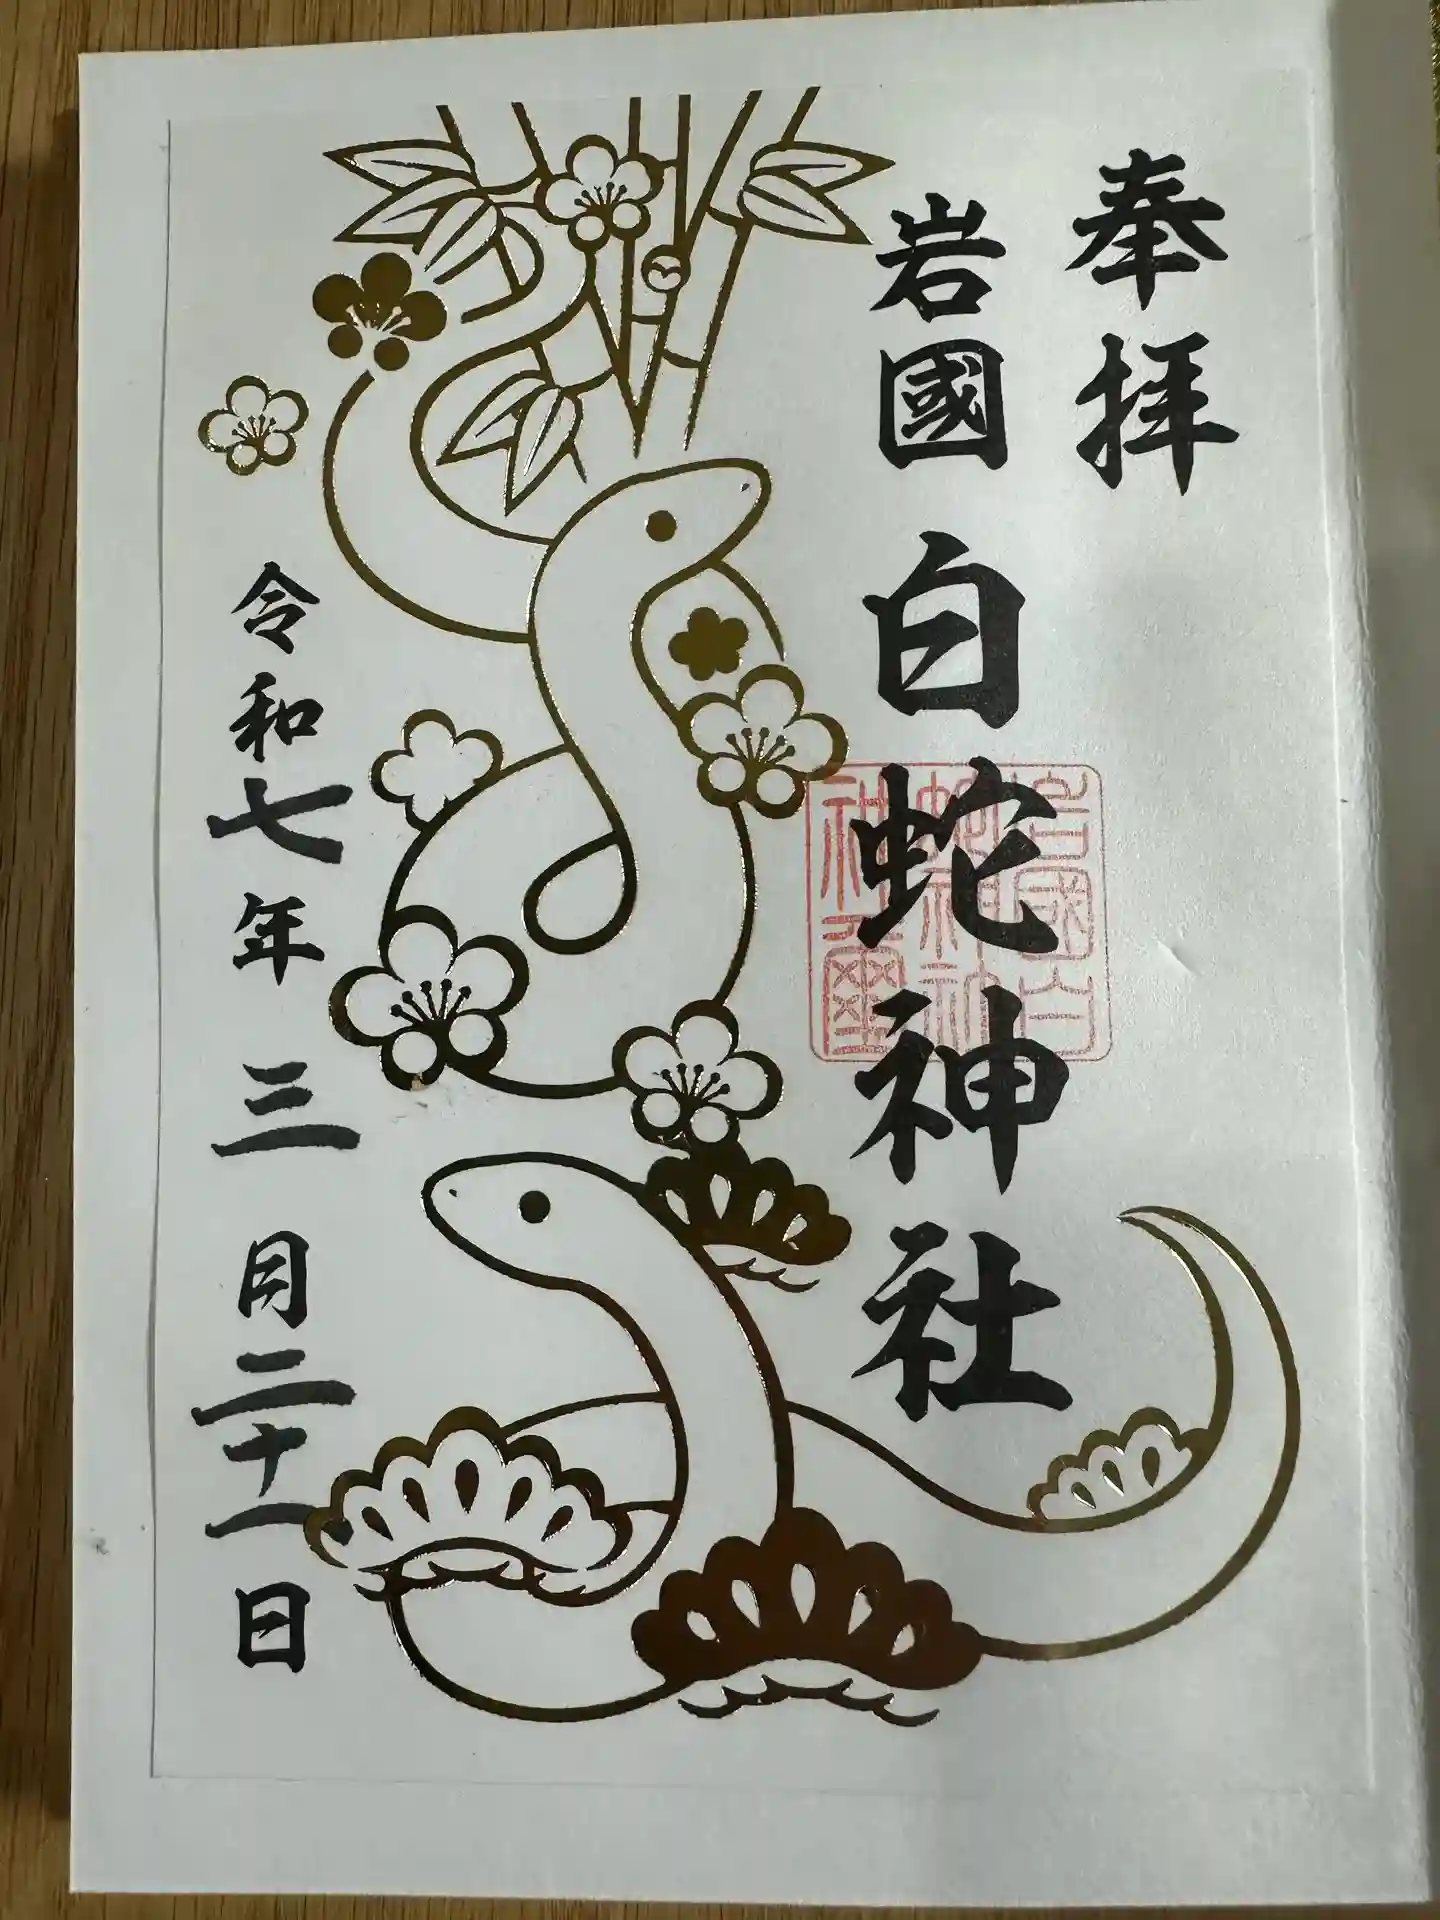 奉拝
岩國 白蛇神社
岩国白
蛇神社
令和七年 三月二十一日